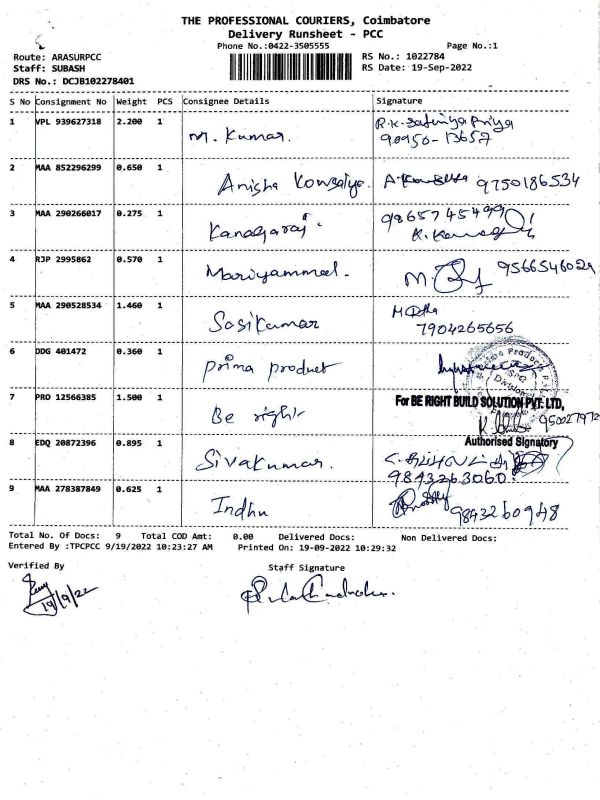 THE PROFESSIONAL COURIERS, Coimbatore
Delivery Runsheet - PCC
Phone No.:0422-3505555 Page No.:1
Route: ARASURPCC RS No.: 1022784
Staff: SUBASH RS Date: 19-Sep-2022
DRS No.: DCJB102278401
S No Consignment No Weight PCS Consignee Details Signature
1 VPL 939627318 2.200 1 M. Kumar. R.K. Sathiya Priya
90950-13657
2 MAA 852296299 0.650 1 Anisha Kowsalya. 9750186534
3 MAA 290266017 0.275 1 Kanagaraj. 9865745499
4 RJP 2995862 0.570 1 Mariyammal. 9566546029
5 MAA 290528534 1.460 1 Sasikumar
7904265656
6 DDG 401472 0.360 1 prima product
7 PRO 12566385 1.500 1 Be right For BE RIGHT BUILD SOLUTION PVT. LTD,
Authorised Signatory
8 EDQ 20872396 0.895 1 Sivakumar.
9843263060.
9 MAA 278387849 0.625 1 Indhu 9843260948
Total No. Of Docs: 9 Total COD Amt: 0.00 Delivered Docs: Non Delivered Docs:
Entered By :TPCPCC 9/19/2022 10:23:27 AM Printed On: 19-09-2022 10:29:32
Verified By Staff Signature
19/9/22